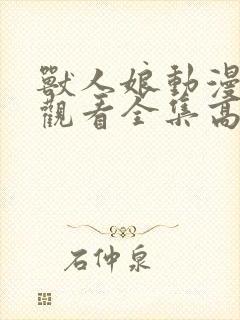 獸人娘動漫
觀看全集高
石仲泉